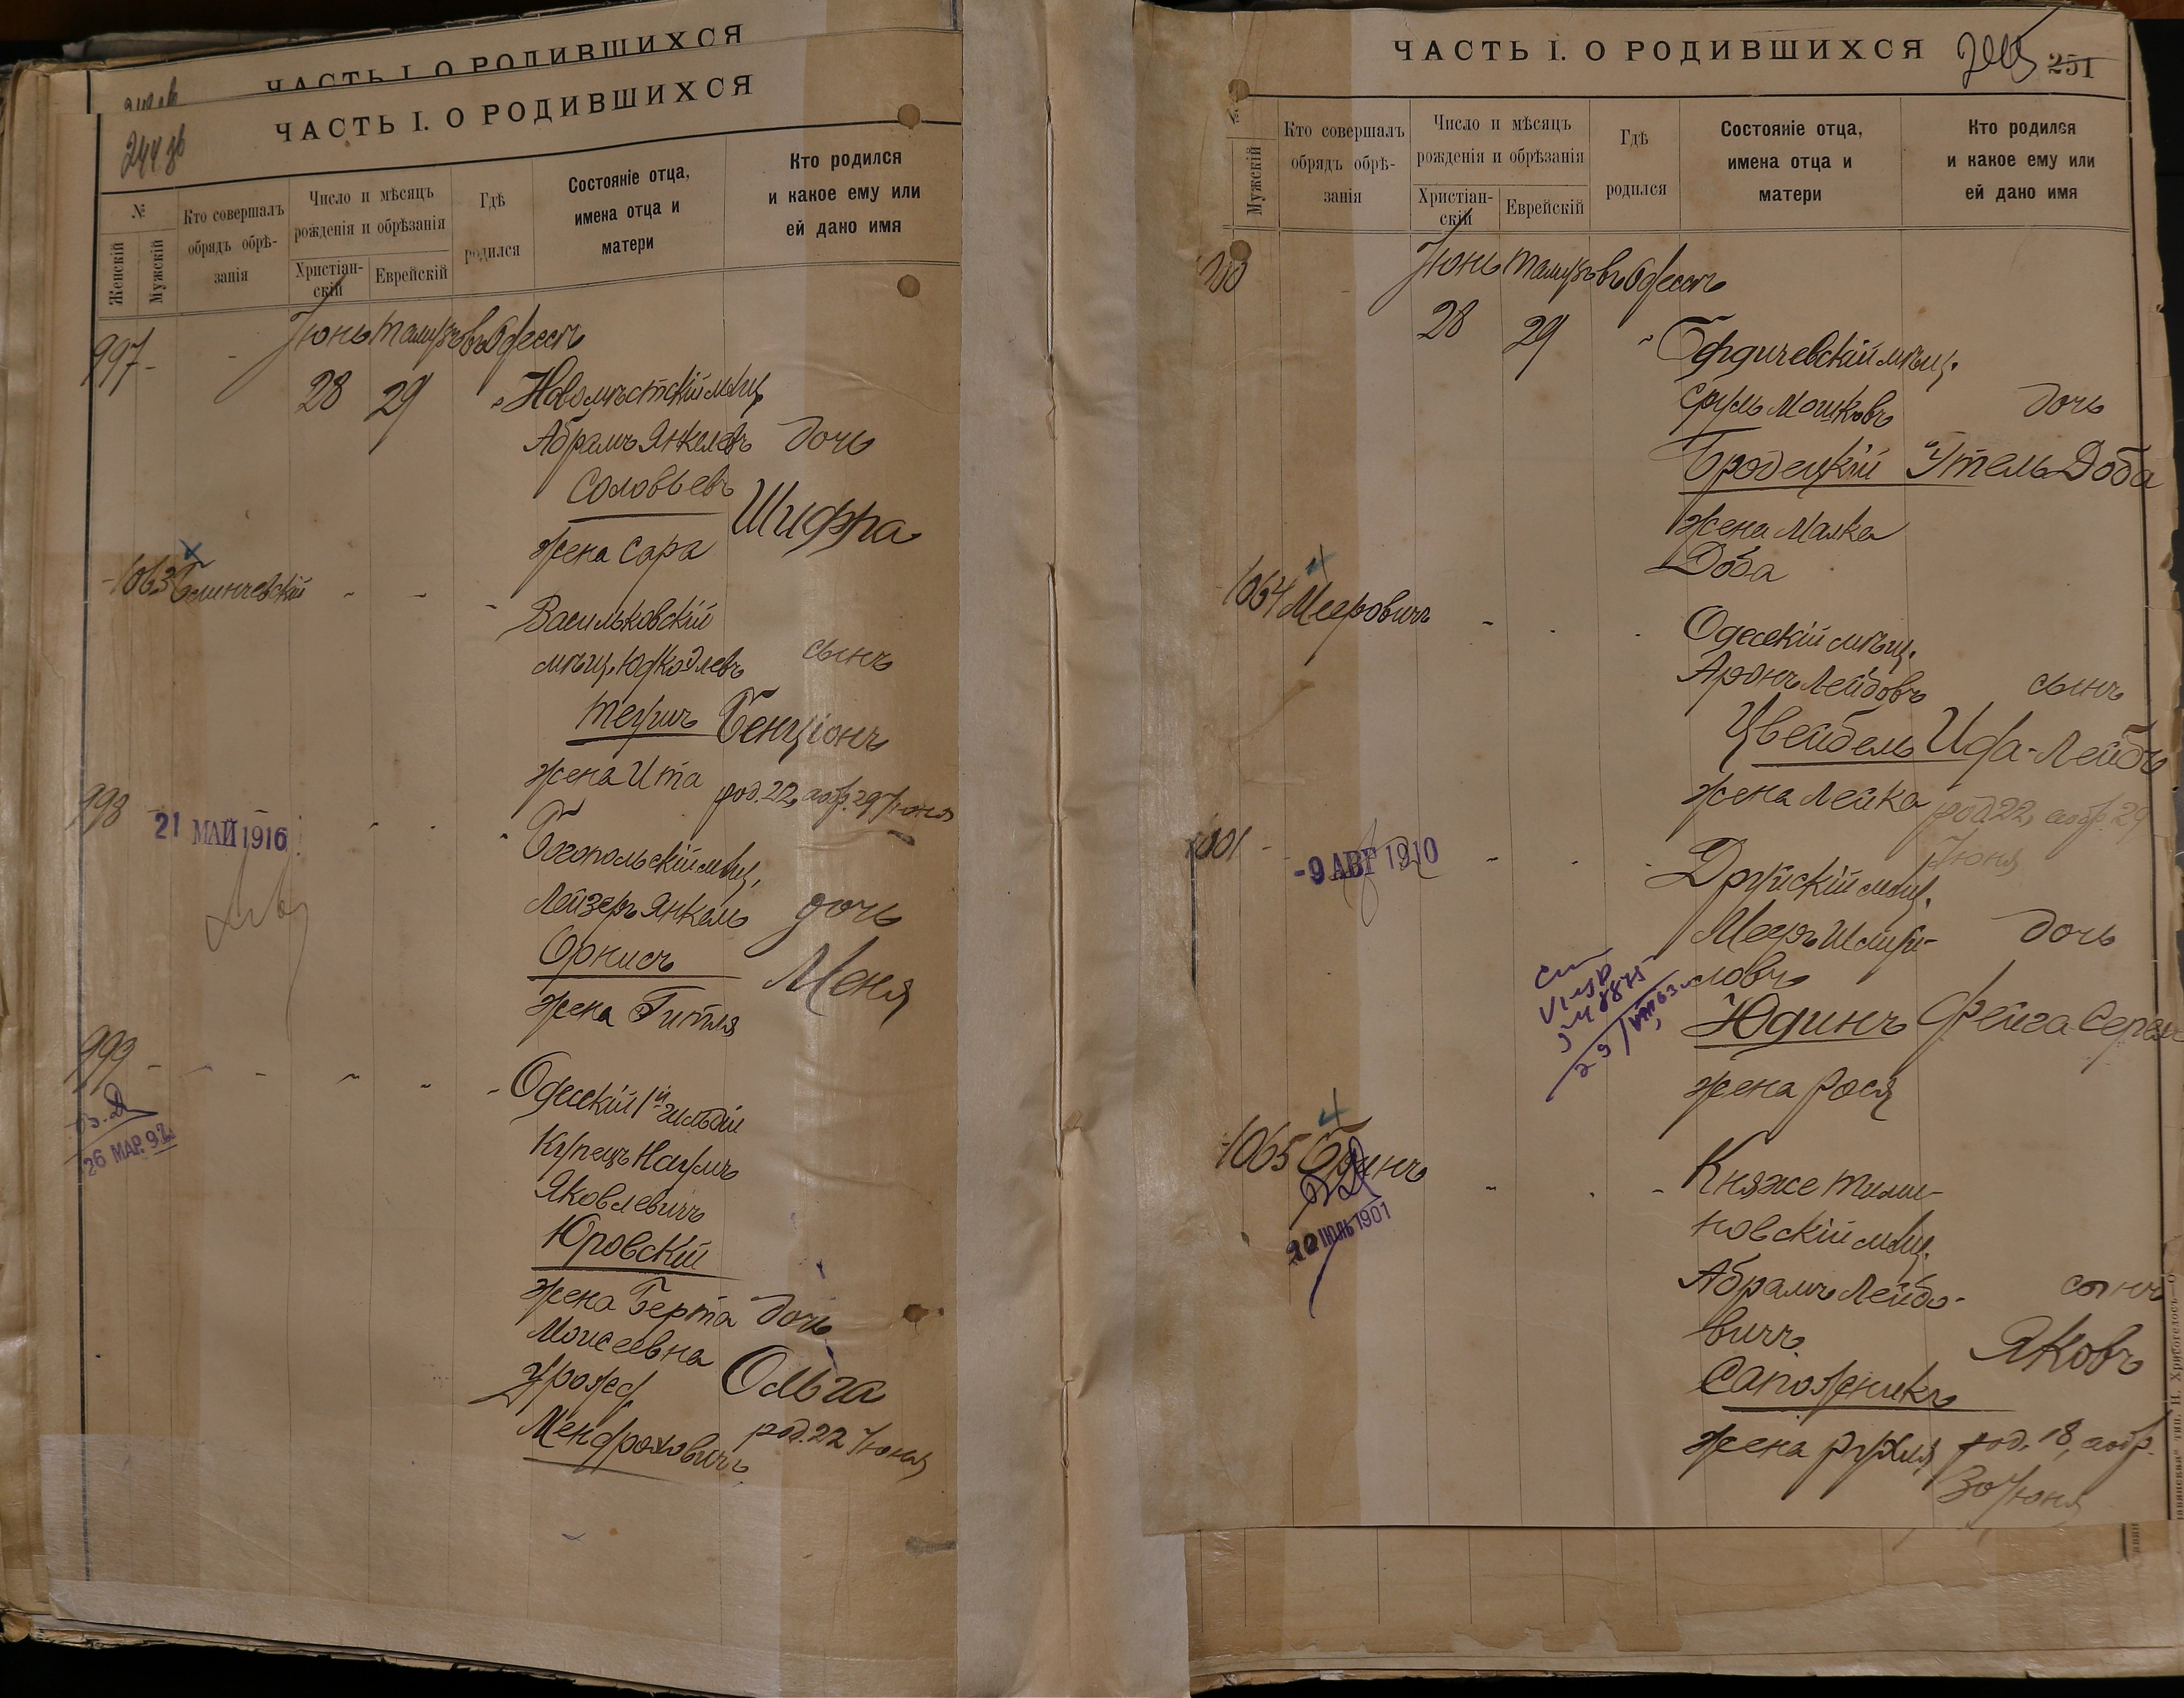 ЧАСТЬ I. О РОДИВШИХСЯ
ЧАСТЬ I. О РОДИВШИХСЯ
244 об
№
Женскій
Мужскій
Кто совершалъ
обрядъ обрѣ-
занія
Число и мѣсяцъ
рожденія и обрѣзанія
Христіан-
скій
Еврейскій
Гдѣ
родился
Состояніе отца,
имена отца и
матери
Кто родился
и какое ему или
ей дано имя
997 - - Іюнь Тамузъ въ Одессѣ
28 29 Новомѣстскій мѣщ.
Абрамъ Янкелевъ дочь
Соловьевъ
Шифра
жена Сара
1063
Васильковскій
мѣщ. Юдко Элевъ сынъ
Бенціонъ
жена Ита род. 22, аобр. 29 Іюня
998
21 МАЙ 1916
Богопольскій мѣщ.
Лейзеръ Янкель дочь
Орнисъ
Меня
жена Гитля
999
26 МАР. 92
Одесскій 1й гильдіи
Купецъ Наумъ
Яковлевичъ
Юровскій
жена Берта дочь
Моисеевна
Ольга
урожд.
род. 22 Іюня
ЧАСТЬ I. О РОДИВШИХСЯ
245 251
№
Мужскій
Кто совершалъ
обрядъ обрѣ-
занія
Число и мѣсяцъ
рожденія и обрѣзанія
Христіан-
скій
Еврейскій
Гдѣ
родился
Состояніе отца,
имена отца и
матери
Кто родился
и какое ему или
ей дано имя
Іюнь Тамузъ въ Одессѣ
28 29 Бердичевскій мѣщ.
Сруль Мошковъ дочь
Бродецкій Этель Доба
жена Малка
Доба
1064 Мееровичъ
Одесскій мѣщ.
Аронъ Лейбовъ сынъ
Цвейбель Ифа-Лейбъ
жена Лейка род 22, аобр. 29
Іюня
1001
-9 АВГ 1910
Друйскій мѣщ.
Мееръ Шмуй- дочь
ловъ
Юдинъ Фейга
жена Рося
1065
20 ІЮЛЬ 1901
Княже
новскій мѣщ.
Абрамъ Лейбо- сынъ
вичъ
Яковъ
Сапожникъ
жена Рухля род. 18, аобр.
30 Іюня